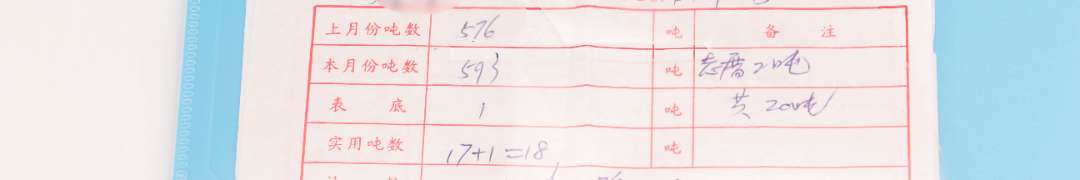 上月份吨数 576 吨 备 注
本月份吨数 593 吨 2吨
表 底 1 吨 共 200吨
实用吨数 17+1=18 吨